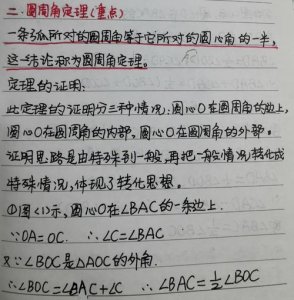 二.圆周角定理(重点)
一条弧所对的圆周角等于它所对的圆心角的一半,
这一结论称为圆周角定理。
定理的证明:
此定理的证明分三种情况:圆心O在圆周角的边上,
圆心O在圆周角的内部,圆心O在圆周角的外部。
证明思路是由特殊到一般,再把一般情况转化成
特殊情况,体现了转化思想。
①图<1>示,圆心O在∠BAC的一条边上.
∵OA=OC. ∴∠C=∠BAC
又∵∠BOC是△AOC的外角.
∴∠BOC=∠BAC+∠C ∴∠BAC=½∠BOC